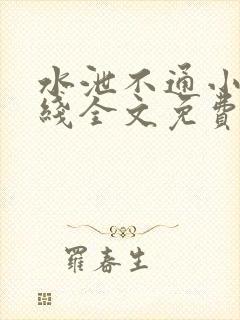 水泄不通小
线全文免費
羅春生